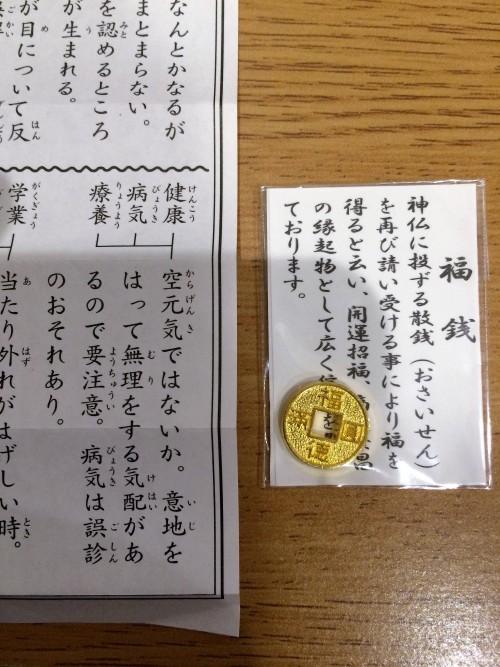 なんとかなるが
まとまらない。
を認めるところ
が生まれる。
が目について反
健康
病気
療養
空元気ではないか。 意地を
はって無理をする気配があ
るので要注意。 病気は誤診
のおそれあり。
学業
当たり外れがはげしい時。
福銭
神仏に投ずる散銭(おさいせん)
を再び請い受ける事により福を
得ると云い、開運招福、 昌
の縁起物として広く
ております。
福徳圓満